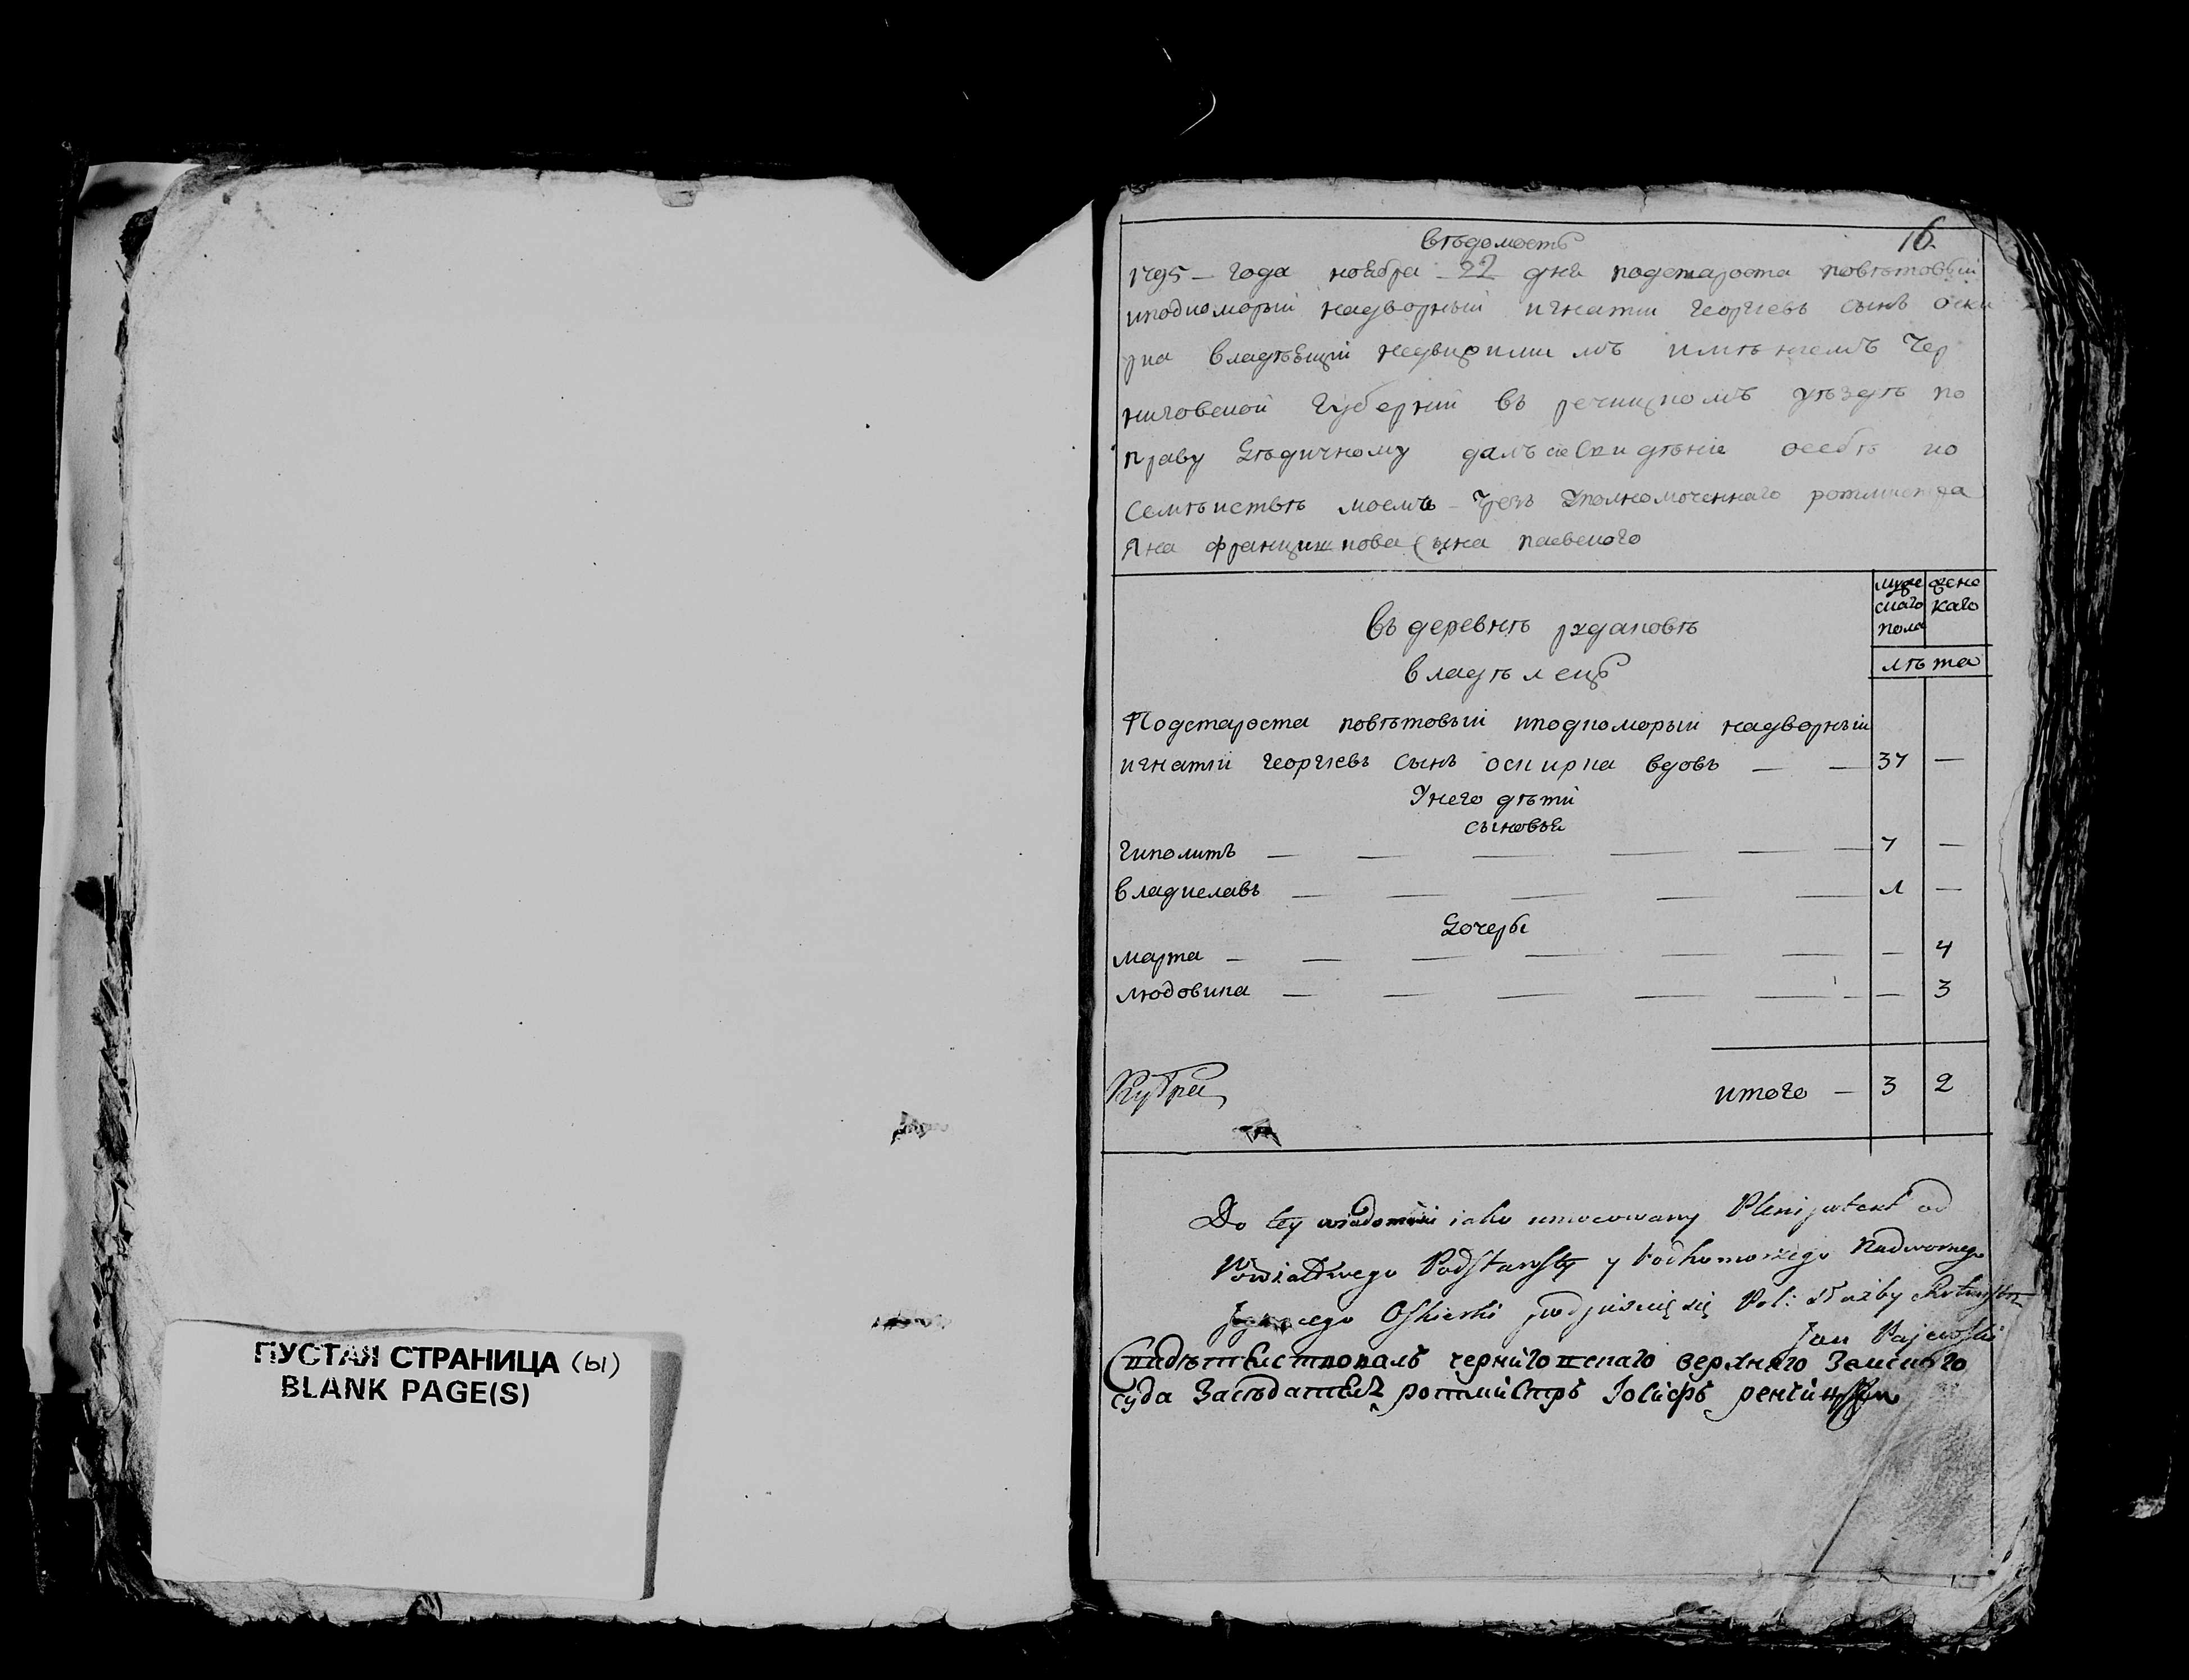 ПУСТАЯ СТРАНИЦА (ы)
BLANK PAGE(S)
16
вѣдомость
1795 – года ноября 22 дня подстароста повѣтовый
иподкоморый надворный игнатии георгіевъ сынъ оски
рка владѣющій недвижимимъ имѣніемъ Чер
ниговской губерніи въ речицкомъ уѣздѣ по
праву дѣдичному далъ сіе свидѣніе о себѣ ио
семѣиствѣ моемъ – чрезъ уполномоченнаго ротмистра
Яна францишкова сына паевского
муже скаго пола
женс каго
лѣта
въ деревнѣ рудаковѣ
владѣлецъ
Подстароста повѣтовый иподкоморый надворный
игнатій георгіевъ сынъ оскирка вдовъ — — 37 —
У него дѣти
сыновья
гиполитъ — — — — — — 7 —
владиславъ — — — — — 1 —
дочери
марта — — — — — — — 4
людовика — — — — — — 3
итого — 3 2
Do tey wiadomości iako umocowany Plenipotent od
Powiatowego Podstarosty y Podkomorzego Nadwornego
Oskierki podpisuię się Pol: Służby Rotmistrz
Jan Pajewski
Свидѣтелствовалъ черниговскаго верхняго Земскаго
суда Засѣдатель ротмистръ Іосифъ